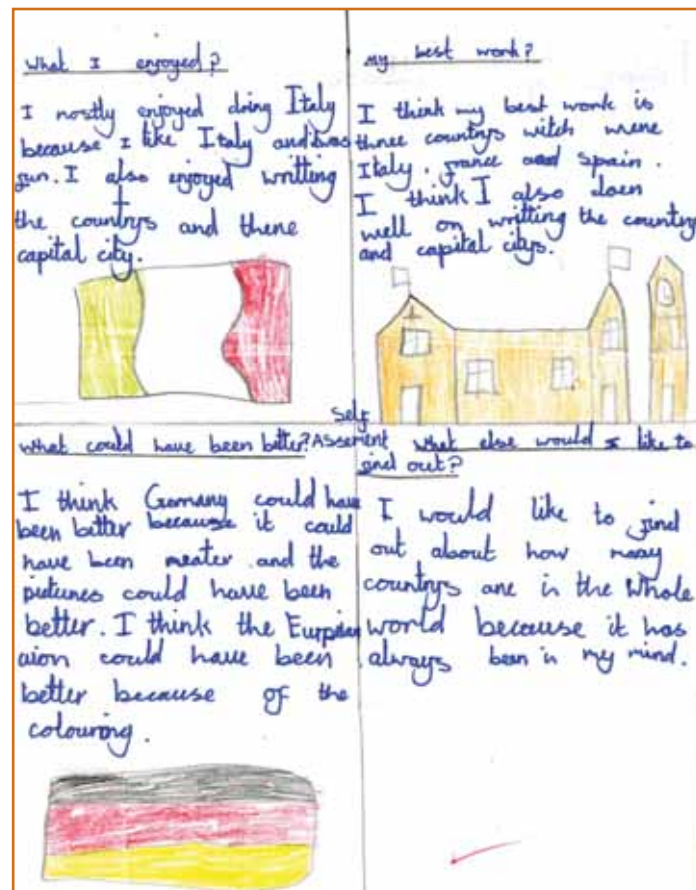 What I enjoyed?
I mostly enjoyed doing Italy
because I like Italy and was
fun. I also enjoyed writting
the countrys and there
capital city.
my best work?
I think my best work is
three countrys witch were
Italy, france and Spain.
I think I also doen
well on writting the country
and capital citys.
Self
Assement
What could have been better?
I think Gemany could have
been better because it could
have been neater and the
pictures could have been
better. I think the Eurpian
uion could have been
better because of the
colouring.
What else would I like to
find out?
I would like to find
out about how many
countrys are in the Whole
world because it has
always been in my mind.